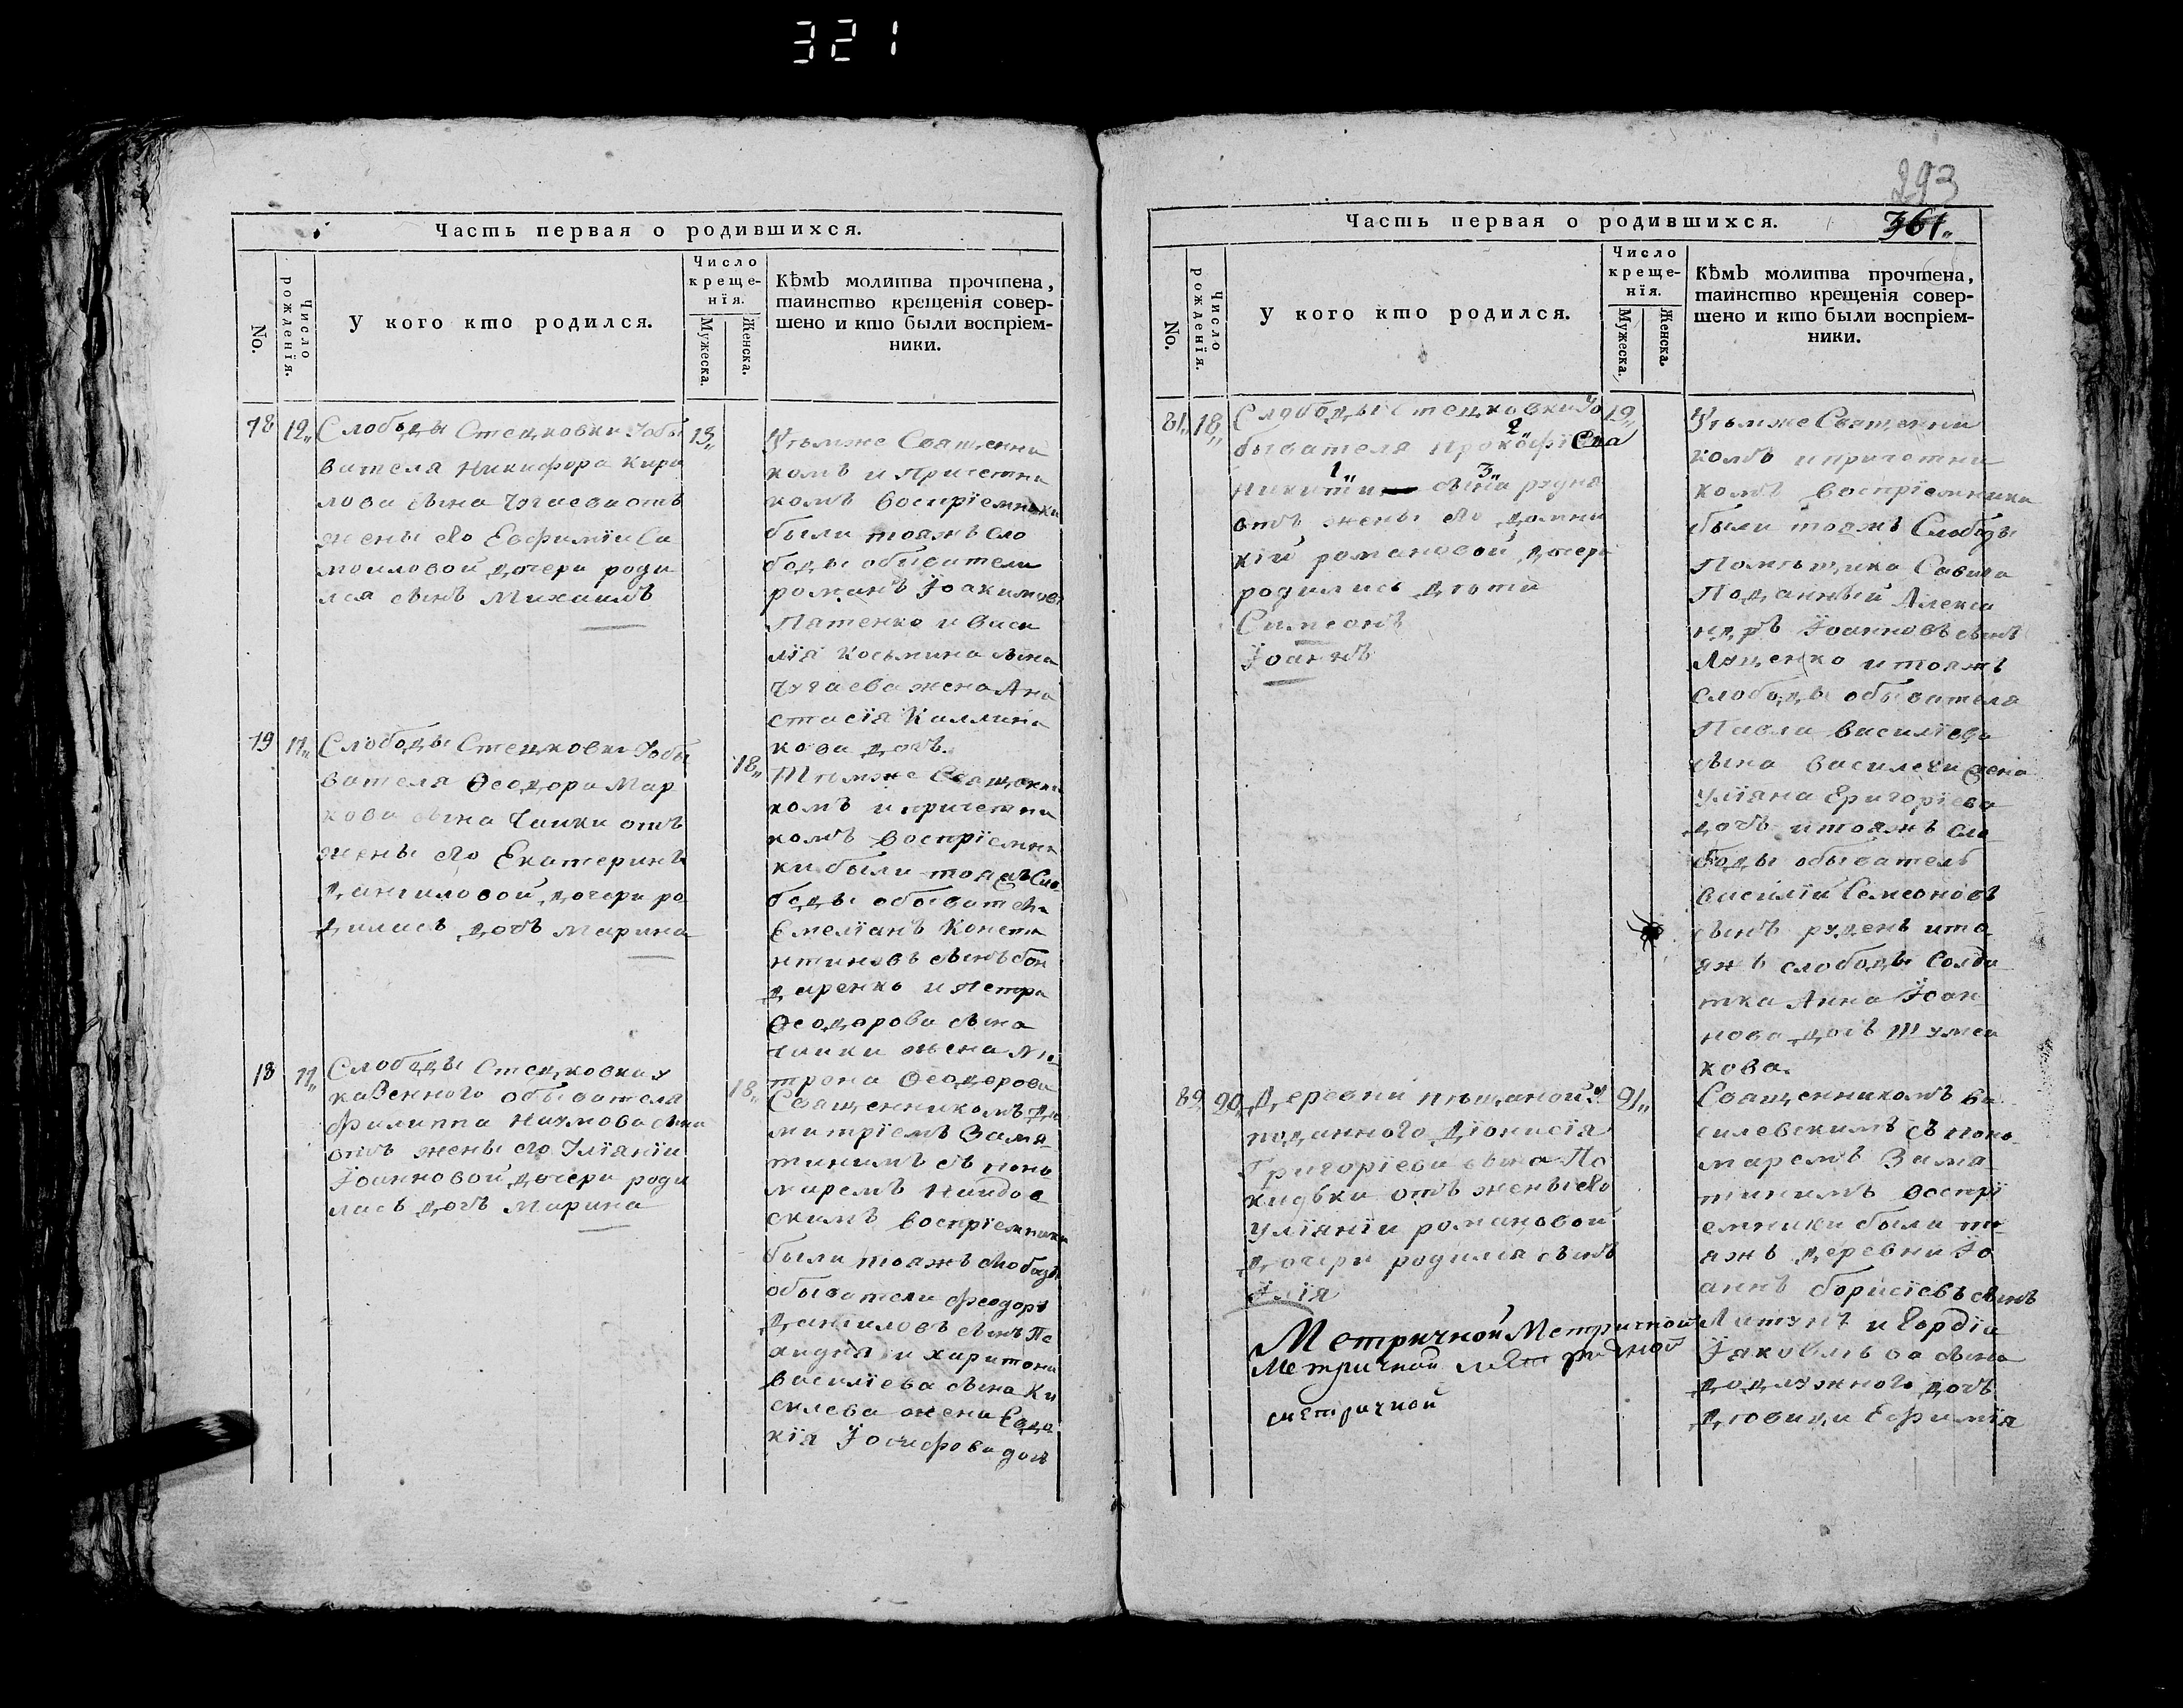 321
Часть первая о родившихся.
No.
Число рожденїя.
У кого кто родился.
Число
креще-
нїя.
Мужеска.
Женска.
Кѣмъ молитва прочтена,
таинство крещенїя совер-
шено и кто были воспрїем-
ники.
78
12,,
Слободы Стецковки Уобы
вателя Никифора Кири
лова сына Чугаева отъ
жены его Евфимїи Са
моиловой дочери роди
лся сынъ Михаилъ
13,,
Тѣмже Священни
комъ и Причетни
комъ воспрїемники
были тояжъ сло
боды обыватели
романъ Іоакимовъ
Патенко и васи
лїя Косьмина сына
Чугаева жена Ана
стасїя Каллини
кова дочь.
79
17,,
Слободы Стецковки Уобы
вателя Ѳеодора Мар
кова сына Чаики отъ
жены его Екатерины
Данииловой дочери ро
дилась дочь Марина
18,,
Тѣмже Священни
комъ и причетни
комъ воспрїемни
ки были тояжъ Сло
боды обыватель
Емелїанъ Конста
нтиновъ сынъ бон
даренко и петра
Ѳеодорова сына
Чаики жена Ма
трона Ѳеодорова
18
17,,
Слободы Стецковки у
казенного обывателя
филиппа Наумова сына
отъ жены его Улїянїи
Іоанновой дочери роди
лась дочь Марина
18,,
Священникомъ Ди
митрїемъ Замя
тинимъ съ поно
маремъ Наидов
скимъ воспрїемники
были тояжъ слободы
обыватели феодоръ
Данииловъ сынъ
и харитона
василїева сына Ки
силева жена Евдо
кїя Іосифова дочь
293
361,,
Часть первая о родившихся.
No.
Число рожденїя.
У кого кто родился.
Число
креще-
нїя.
Мужеска.
Женска.
Кѣмъ молитва прочтена,
таинство крещенїя совер-
шено и кто были воспрїем-
ники.
81,,
18,,
Слободы Стецковки Уо
2
бывателя Прокофїева
1,, 3,,
Никити сына рудня
отъ жены его Домни
кїй романовой дочери
родились дѣти
Симеонъ
Іоаннъ
19,,
Тѣмже Священни
комъ и причетни
комъ воспрїемники
были тояжъ Слободы
Помѣщика Савича
Подданный Алекса
ндръ Іоанновъ сынъ
Луценко и тояжъ
слободы обывателя
Павла василїева
сына василечи жена
Улїяна Григорїева
дочь и тояжъ сло
боды обыватель
василїй Семеоновъ
сынъ руденъ и то
яжъ слободы Солда
тка Анна Іоан
нова дочь Шумей
кова.
89
20,,
Деревни пѣщаной у
поданного Дїонисїя
Григорїева сына По
кидьки отъ жены его
Улїянїи романовой
дочери родился сынъ
Илїя
21,,
Священникомъ Ва
силевскимъ съ поно
маремъ Замя
тинимъ воспрї
емники были то
яжъ деревни Іо
аннъ борисїевъ сынъ
Литунъ и Гордїа
Іяковлева сына
додлужного дочь
дѣвица Ефимїя
Метричной Метричной
Метричной метричной
метричной